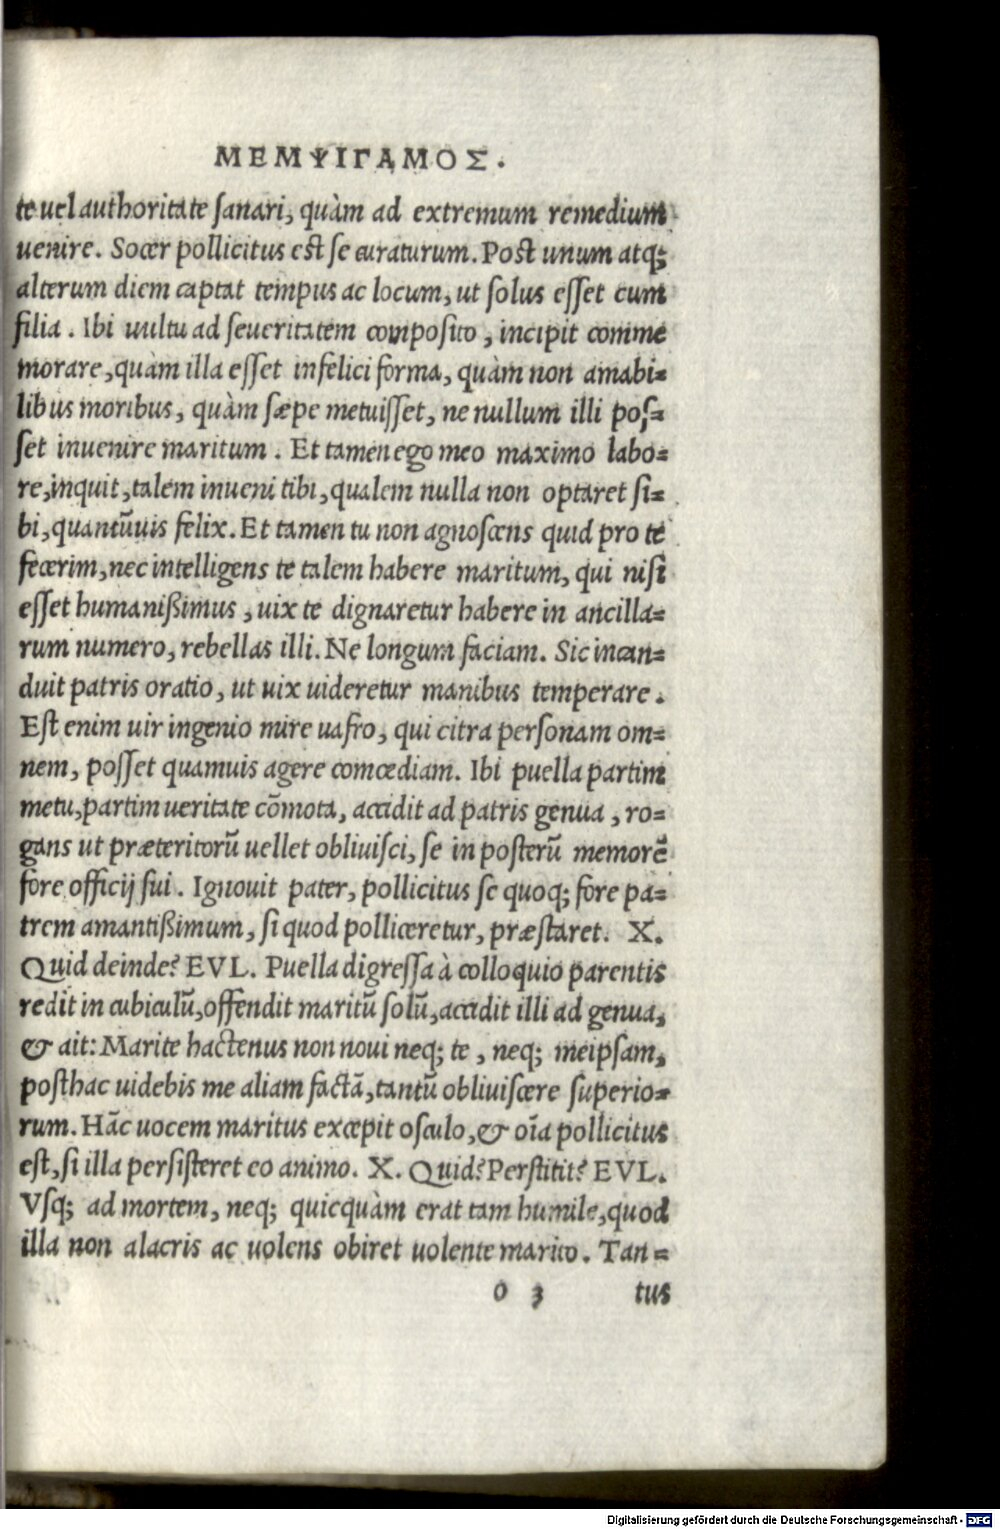 ΜΕΜΨΙΓΑΜΟΣ.
te uel authoritate sanari, quàm ad extremum remedium
uenire. Socer pollicitus est se curaturum. Post unum atq;
alterum diem captat tempus ac locum, ut solus esset cum
filia. Ibi uultu ad seueritatem composito, incipit comme
morare, quàm illa esset infelici forma, quàm non amabi=
libus moribus, quàm sæpe metuisset, ne nullum illi pos=
set inuenire maritum. Et tamen ego meo maximo labo=
re, inquit, talem inueni tibi, qualem nulla non optaret si=
bi, quantũuis felix. Et tamen tu non agnoscens quid pro te
fecerim, nec intelligens te talem habere maritum, qui nisi
esset humanißimus, uix te dignaretur habere in ancilla=
rum numero, rebellas illi. Ne longum faciam. Sic incan=
duit patris oratio, ut uix uideretur manibus temperare.
Est enim uir ingenio mire uafro, qui citra personam om=
nem, posset quamuis agere comœdiam. Ibi puella partim
metu, partim ueritate cõmota, accidit ad patris genua, ro=
gans ut præteritorũ uellet obliuisci, se in posterũ memorẽ
fore officij sui. Ignouit pater, pollicitus se quoq; fore pa=
trem amantißimum, si quod polliceretur, præstaret. X.
Quid deinde? EVL. Puella digressa à colloquio parentis
redit in cubiculũ, offendit maritũ solũ, accidit illi ad genua,
& ait: Marite hactenus non noui neq; te, neq; meipsam,
posthac uidebis me aliam factã, tantũ obliuiscere superio=
rum. Hãc uocem maritus excepit osculo, & oĩa pollicitus
est, si illa persisteret eo animo. X. Quid? Perstitit? EVL.
Vsq; ad mortem, neq; quicquàm erat tam humile, quod
illa non alacris ac uolens obiret uolente marito. Tan=
o 3 tus
Digitalisierung gefördert durch die Deutsche Forschungsgemeinschaft - DFG